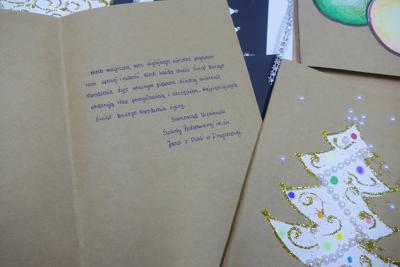 Niech magiczna moc wigilijnego wieczoru przyniesie
Wam spokój i radość. Niech każda chwila Świąt Bożego
Narodzenia żyje własnym pięknem,
obdarują Was pomyślnością i szczęściem. Najpiękniejszych
Świąt Bożego Narodzenia życzy
Samorząd Uczniowski
Szkoły Podstawowej im. św.
Jana z Dukli w